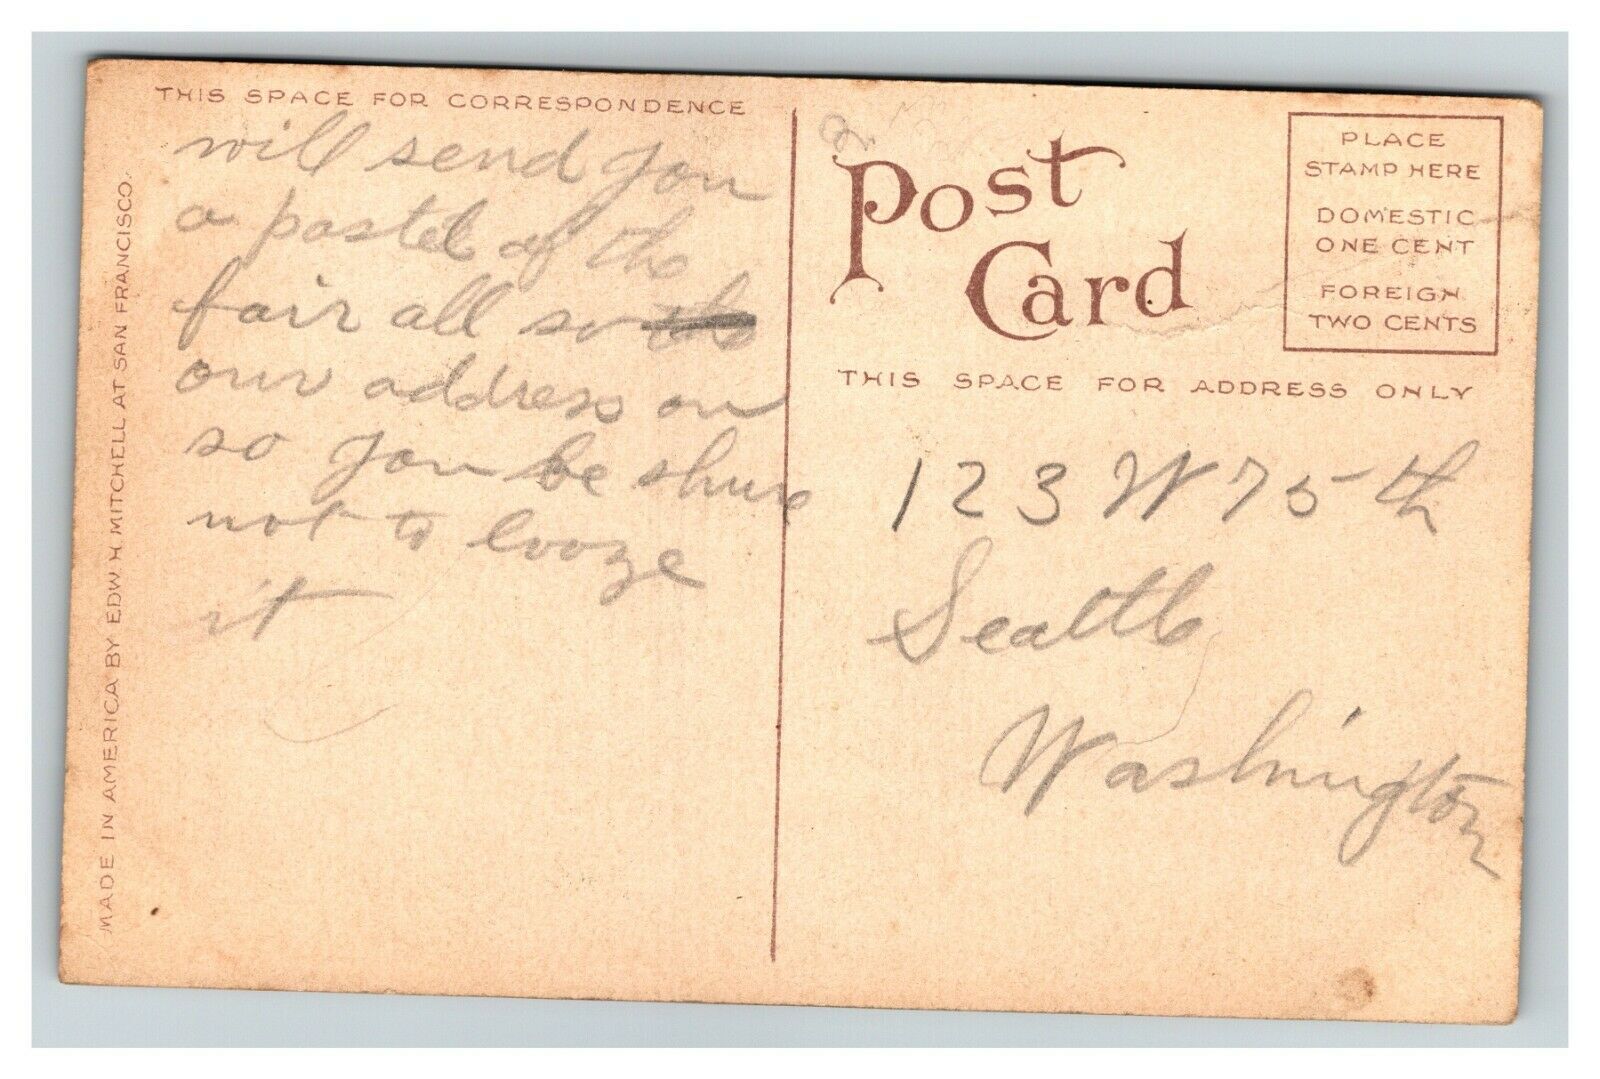 THIS SPACE FOR CORRESPONDENCE
will send you
a postel of the
fair all so
our address on
so you be shure
not to looze
it
MADE IN AMERICA BY EDW H. MITCHELL AT SAN FRANCISCO.
Post
Card
PLACE
STAMP HERE
DOMESTIC
ONE CENT
FOREIGN
TWO CENTS
THIS SPACE FOR ADDRESS ONLY
123 W 75th
Seattle
Washington